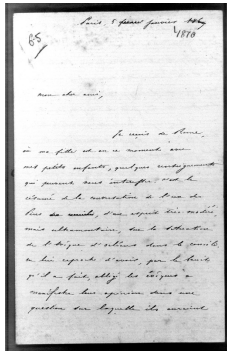 65
Paris 5 février janvier
1870
mon cher ami,
Je reçois de Rome,
où ma fille est en ce moment avec
ses petits enfants, quelques renseignements
qui peuvent vous c'est le
résumé de la conversation d'un des
Pères du concile, d'un esprit très modéré
mais ultramontain, sur la situation
de l'évêque d'orléans dans le concile.
on lui reproche d'avoir, par le bruit
qu'il a fait, obligé les évêques à
manifester leur opinion dans une
question sur laquelle ils auraient